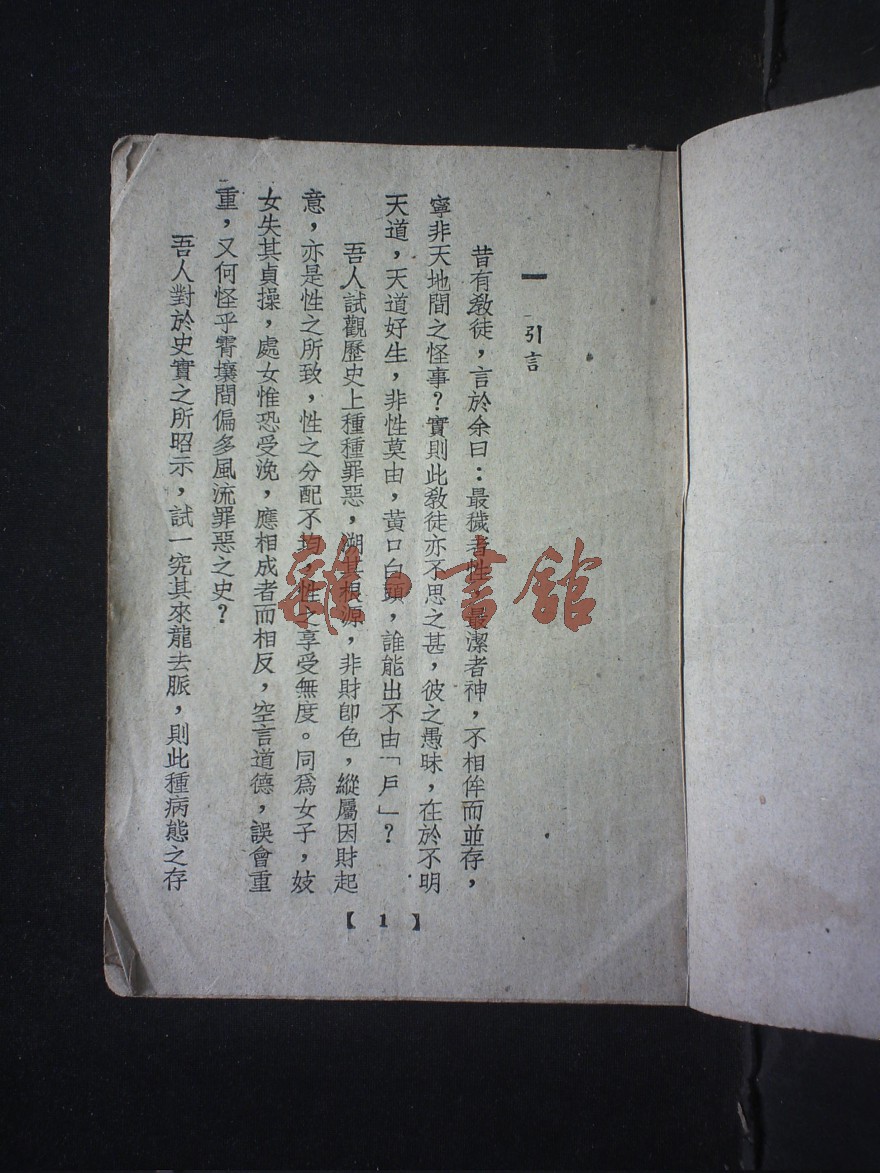 一 引言
昔有敎徒，言於余曰：最穢者性，最潔者神，不相侔而並存，
寧非天地間之怪事？實則此敎徒亦不思之甚，彼之愚昧，在於不明
天道，天道好生，非性莫由，黃口白頭，誰能出不由「戶」？
吾人試觀歷史上種種罪惡，溯其根源，非財卽色，縱屬因財起
意，亦是性之所致，性之分配不均，性之享受無度。同爲女子，妓
女失其貞操，處女惟恐受浼，應相成者而相反，空言道德，誤會重
重，又何怪乎霄壤間偏多風流罪惡之史？
吾人對於史實之所昭示，試一究其來龍去脈，則此種病態之存
【1】
雜·書館